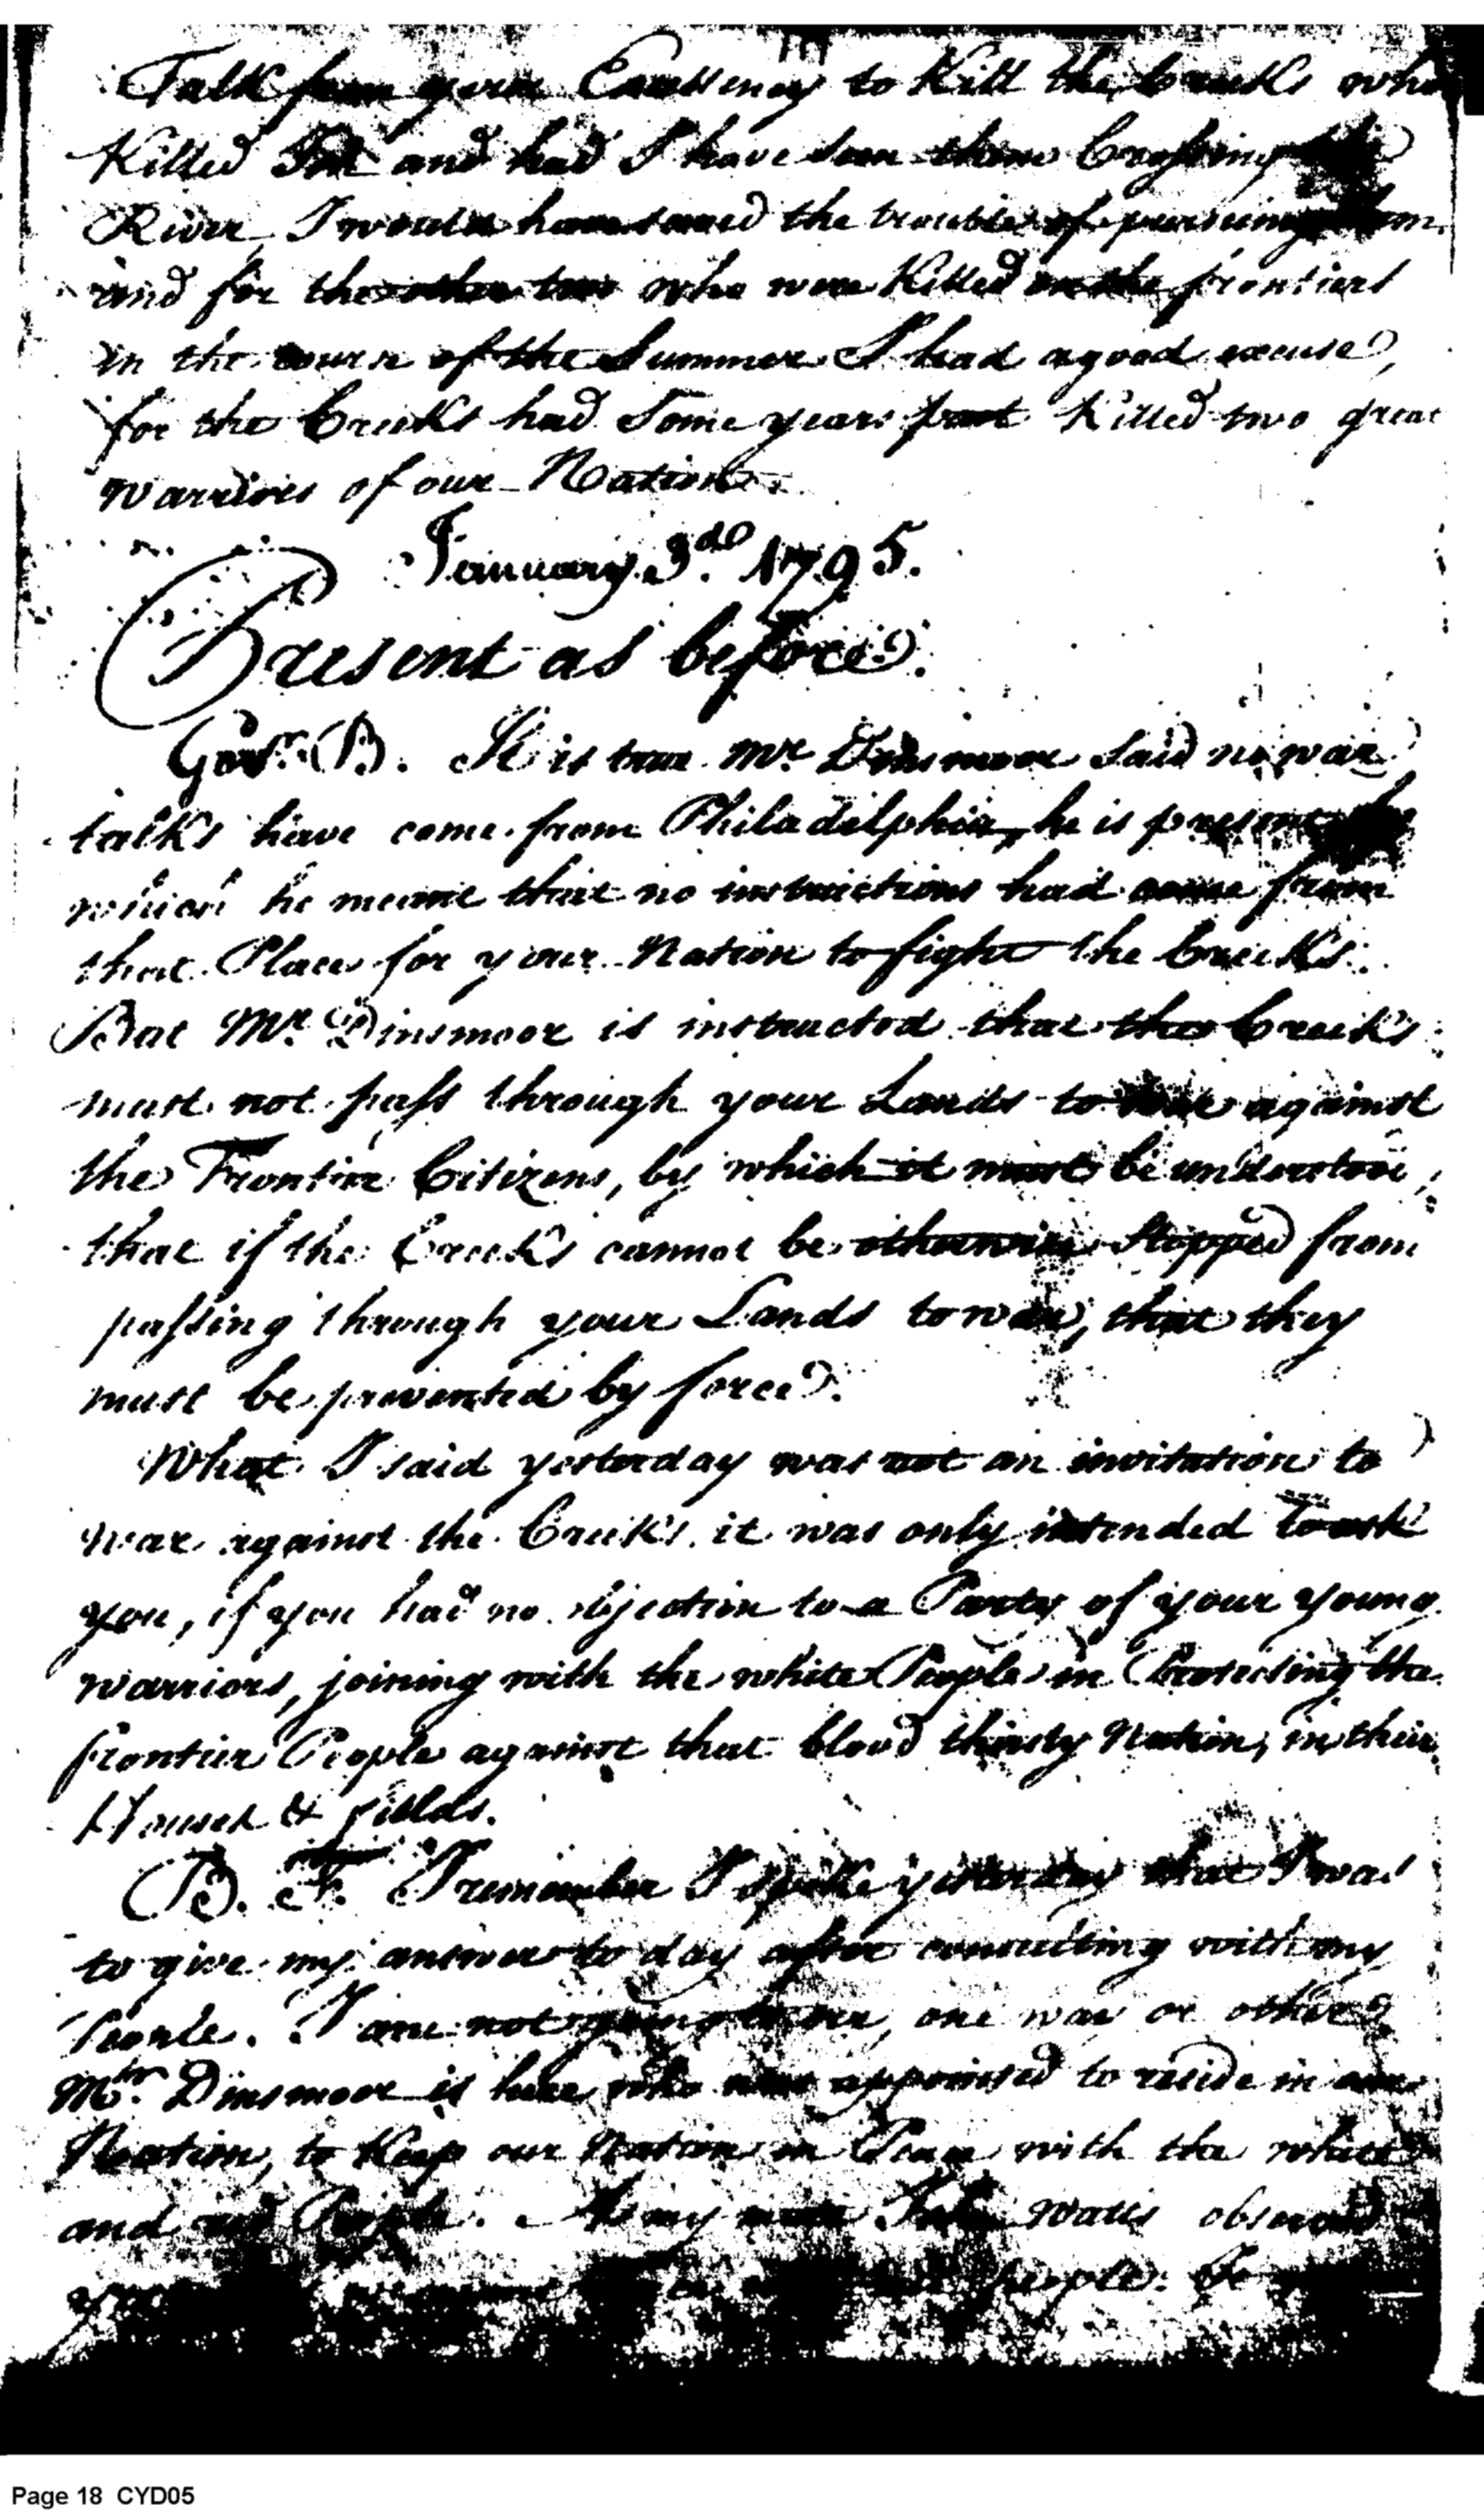 Talk from your Excellency to Kill the Creeks who
Killed and had I have seen them Crossing
River, I would have saved the trouble of pursuing them.
and for the other two who were Killed on the frontiers
in the course of the Summer I had a good excuse,
for the Creeks had Some years past Killed two great
warriors of our Nation.
January 3d. 1795.
Present as before.
Govr. B. It is true Mr. Dinsmoor Said no war
talks have come from Philadelphia, he is present
which he meant that no instructions had come from
that Place for your Nation to fight the Creeks.
But Mr. Dinsmoor is instructed that the Creeks
must not pass through your Lands to war against
the Frontier Citizens, by which it must be understood,
that if the Creeks cannot be otherwise Stopped from
passing through your Lands to war, that they
must be prevented by force.
What I said yesterday was not an invitation to
war against the Creeks, it was only intended to ask
you, if you had no objection to a Party of your young
warriors, joining with the white People in Protecting the
frontier People against that blood thirsty Nation, in their
Houses & fields.
B. F. I remember I spoke yesterday that I was
to give my answer to day after consulting with my
People. I am not going to one way or other
Mr. Dinsmoor is here, who was appointed to reside in our
Nation, to Keep our Nation in Peace with the white
and red People. Watts observed
people.
Page 18 CYD05